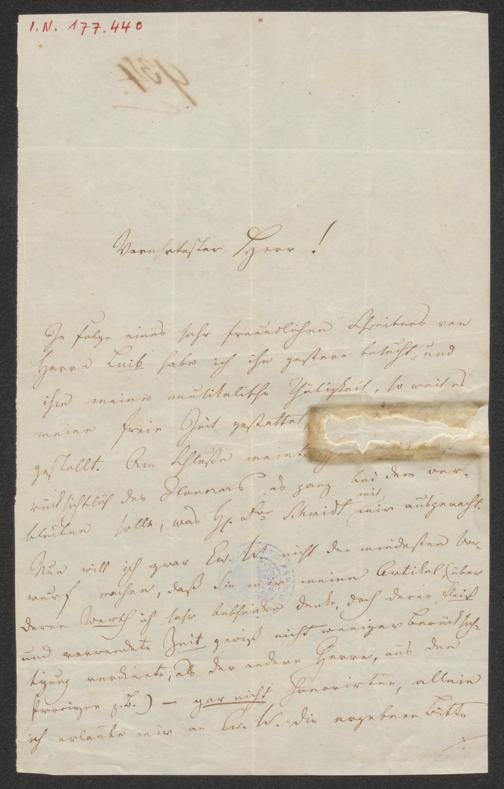 I.N. 177.440
934
Verehrtester Herr!
In Folge eines sehr freundlichen Schreibens von
Herrn Luib habe ich ihn gestern besucht, und
ihm meine musikalische Thätigkeit, so weit es
meine freie Zeit gestattet
gestellt. Am Schluße meinte
rücksichtlich des Honorars es ganz bei dem ver-
bleiben solle, was H. Dor Schmidt mit mir ausgemacht.
Nun will ich zwar Ew. W. nicht den mindesten Vor-
wurf machen, daß Sie mir meine Artikel (über
deren Werth ich sehr bescheiden denke, doch deren Fleiß
und verwendete Zeit gewiß nicht weniger Berücksich-
tigung verdient, als der andern Herrn, aus den
Provinzen z.B.) — gar nicht honorirten, allein
ich erlaube mir an Ew. W. die ergebene Bitte